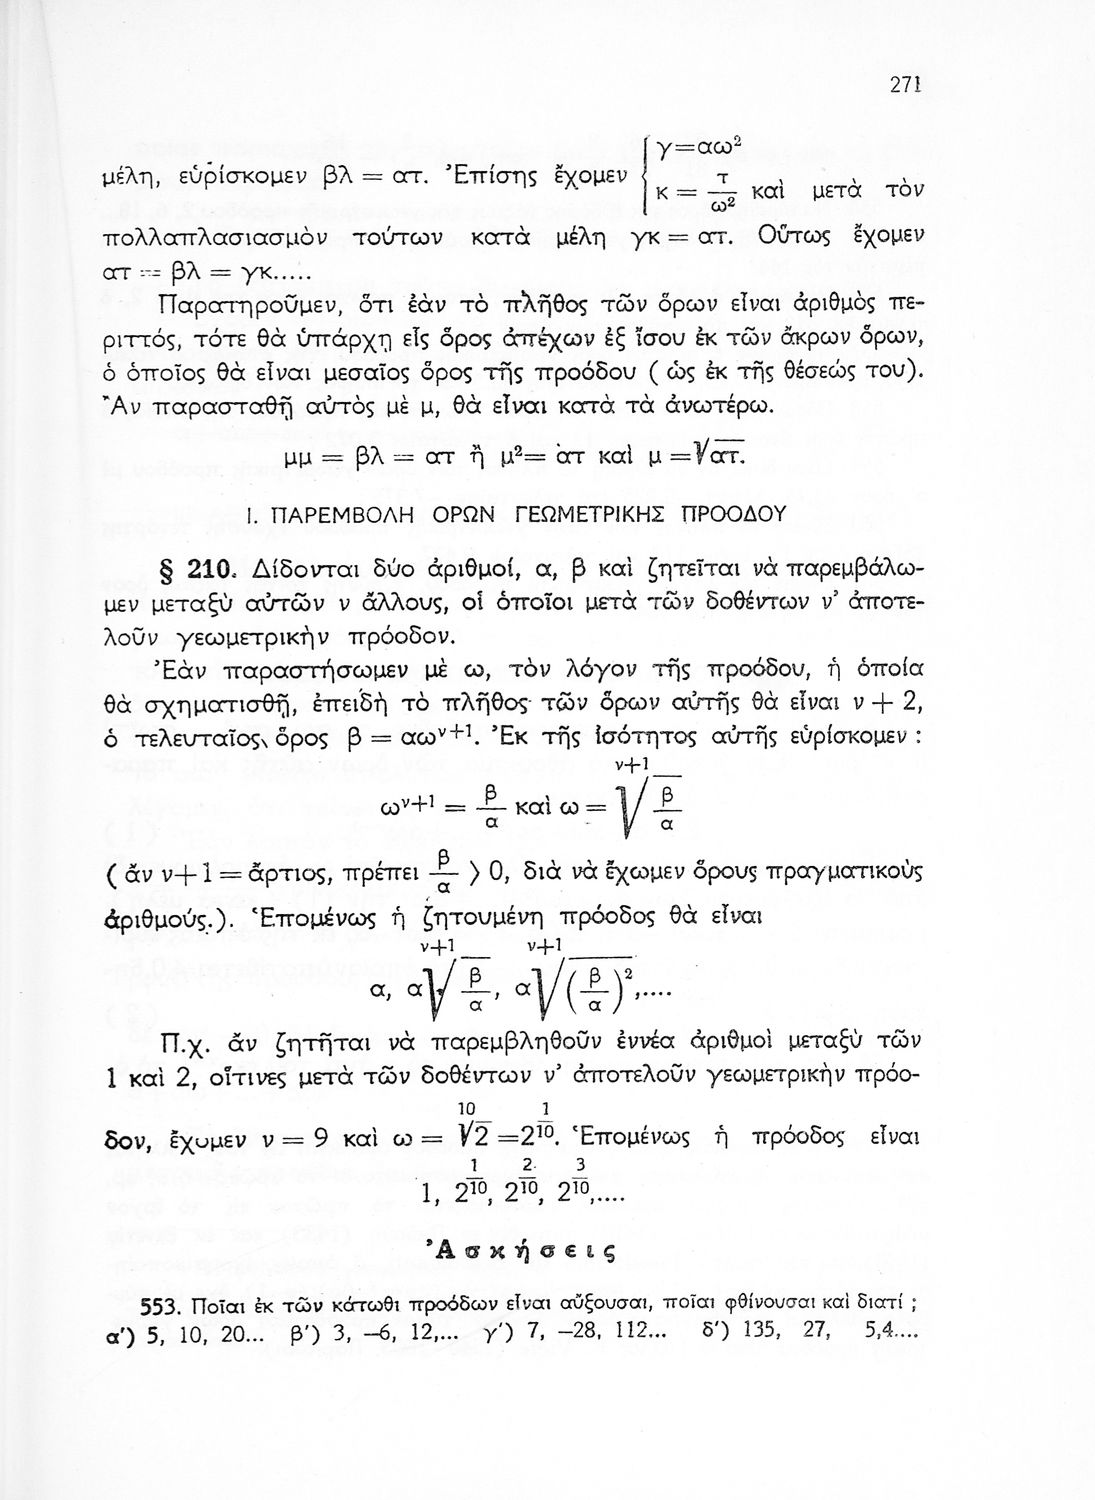 271
μέλη, εὑρίσκομεν βλ = ατ. Ἐπίσης ἔχομεν { γ=αω² κ = τ/ω² καὶ μετὰ τὸν
πολλαπλασιασμὸν τούτων κατὰ μέλη γκ = ατ. Οὕτως ἔχομεν
ατ = βλ = γκ.....
Παρατηροῦμεν, ὅτι ἐὰν τὸ πλῆθος τῶν ὅρων εἶναι ἀριθμὸς πε-
ριττός, τότε θὰ ὑπάρχῃ εἷς ὅρος ἀπέχων ἐξ ἴσου ἐκ τῶν ἄκρων ὅρων,
ὁ ὁποῖος θὰ εἶναι μεσαῖος ὅρος τῆς προόδου ( ὡς ἐκ τῆς θέσεώς του).
Ἂν παρασταθῇ αὐτὸς μὲ μ, θὰ εἶναι κατὰ τὰ ἀνωτέρω.
μμ = βλ = ατ ἢ μ²= ατ καὶ μ =√ατ.
Ι. ΠΑΡΕΜΒΟΛΗ ΟΡΩΝ ΓΕΩΜΕΤΡΙΚΗΣ ΠΡΟΟΔΟΥ
§ 210. Δίδονται δύο ἀριθμοί, α, β καὶ ζητεῖται νὰ παρεμβάλω-
μεν μεταξὺ αὐτῶν ν ἄλλους, οἱ ὁποῖοι μετὰ τῶν δοθέντων ν’ ἀποτε-
λοῦν γεωμετρικὴν πρόοδον.
Ἐὰν παραστήσωμεν μὲ ω, τὸν λόγον τῆς προόδου, ἡ ὁποία
θὰ σχηματισθῇ, ἐπειδὴ τὸ πλῆθος τῶν ὅρων αὐτῆς θὰ εἶναι ν + 2,
ὁ τελευταῖος ὅρος β = αω^(ν+1). Ἐκ τῆς ἰσότητος αὐτῆς εὑρίσκομεν :
ω^(ν+1) = β/α καὶ ω = ^(ν+1)√(β/α)
( ἂν ν+1 = ἄρτιος, πρέπει β/α ⟩ 0, διὰ νὰ ἔχωμεν ὅρους πραγματικοὺς
ἀριθμούς.). Ἑπομένως ἡ ζητουμένη πρόοδος θὰ εἶναι
α, α ^(ν+1)√(β/α), α ^(ν+1)√((β/α)²),....
Π.χ. ἂν ζητῆται νὰ παρεμβληθοῦν ἐννέα ἀριθμοὶ μεταξὺ τῶν
1 καὶ 2, οἵτινες μετὰ τῶν δοθέντων ν’ ἀποτελοῦν γεωμετρικὴν πρόο-
δον, ἔχομεν ν = 9 καὶ ω = ^(10)√2 =2^(1/10). Ἑπομένως ἡ πρόοδος εἶναι
1, 2^(1/10), 2^(2/10), 2^(3/10),....
Ἀσκήσεις
553. Ποῖαι ἐκ τῶν κάτωθι προόδων εἶναι αὔξουσαι, ποῖαι φθίνουσαι καὶ διατί ;
α′) 5, 10, 20... β′) 3, –6, 12,... γ′) 7, –28, 112... δ′) 135, 27, 5,4....